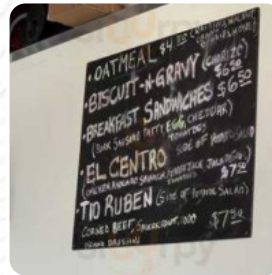 • OATMEAL $4.25
• BISCUIT-N-GRAVY (CHORIZO) $6.50
• BREAKFAST SANDWICHES $6.50
(PORK SAUSAGE PATTY EGG CHEDDAR)
TOMATOES SIDE OF POTATO SALAD
• EL CENTRO
(CHICKEN AVOCADO SPINACH PEPPERJACK JALAPEÑO)
TOMATOES $7.50
• TIO RUBEN (SIDE OF POTATO SALAD)
CORNED BEEF, SAUERKRAUT, 1000 $7.50
ISLAND DRESSING